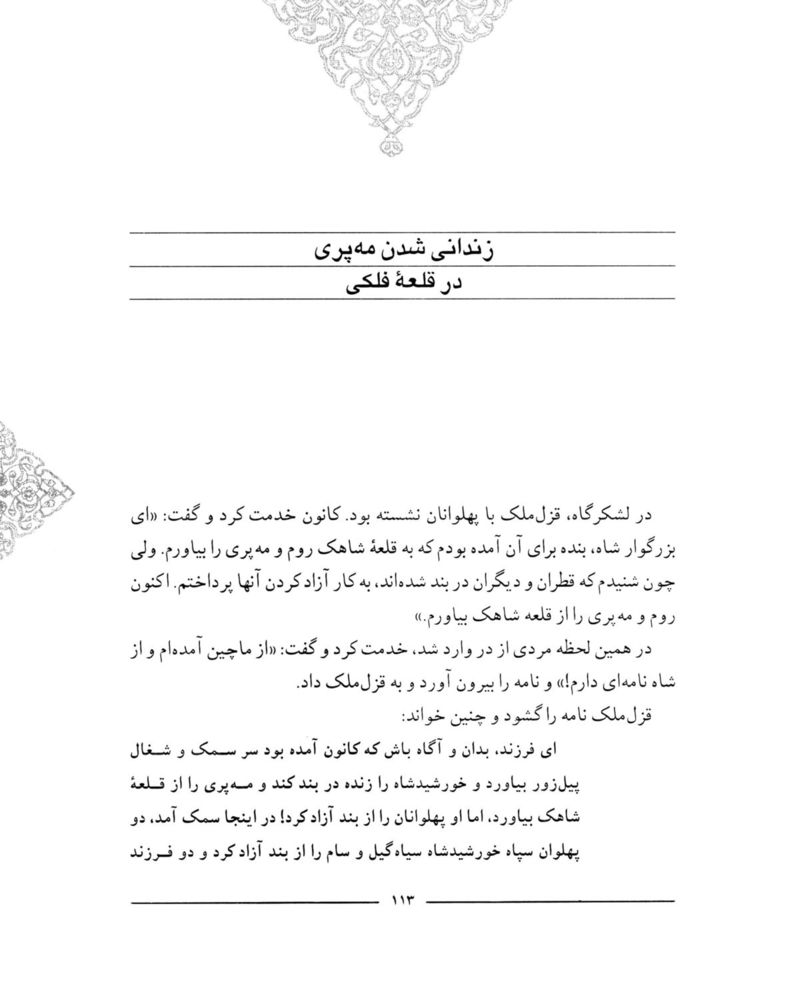 زندانی شدن مه‌پری
در قلعهٔ فلکی
در لشکرگاه، قزل‌ملک با پهلوانان نشسته بود. کانون خدمت کرد و گفت: «ای
بزرگوار شاه، بنده برای آن آمده بودم که به قلعهٔ شاهک روم و مه‌پری را بیاورم. ولی
چون شنیدم که قطران و دیگران در بند شده‌اند، به کار آزاد کردن آنها پرداختم. اکنون
روم و مه‌پری را از قلعه شاهک بیاورم.»
در همین لحظه مردی از در وارد شد، خدمت کرد و گفت: «از ماچین آمده‌ام و از
شاه نامه‌ای دارم!» و نامه را بیرون آورد و به قزل‌ملک داد.
قزل‌ملک نامه را گشود و چنین خواند:
ای فرزند، بدان و آگاه باش که کانون آمده بود سر سمک و شغال
پیل‌زور بیاورد و خورشیدشاه را زنده در بند کند و مه‌پری را از قلعهٔ
شاهک بیاورد، اما او پهلوانان را از بند آزاد کرد! در اینجا سمک آمد، دو
پهلوان سپاه خورشیدشاه سیاه‌گیل و سام را از بند آزاد کرد و دو فرزند
۱۱۳